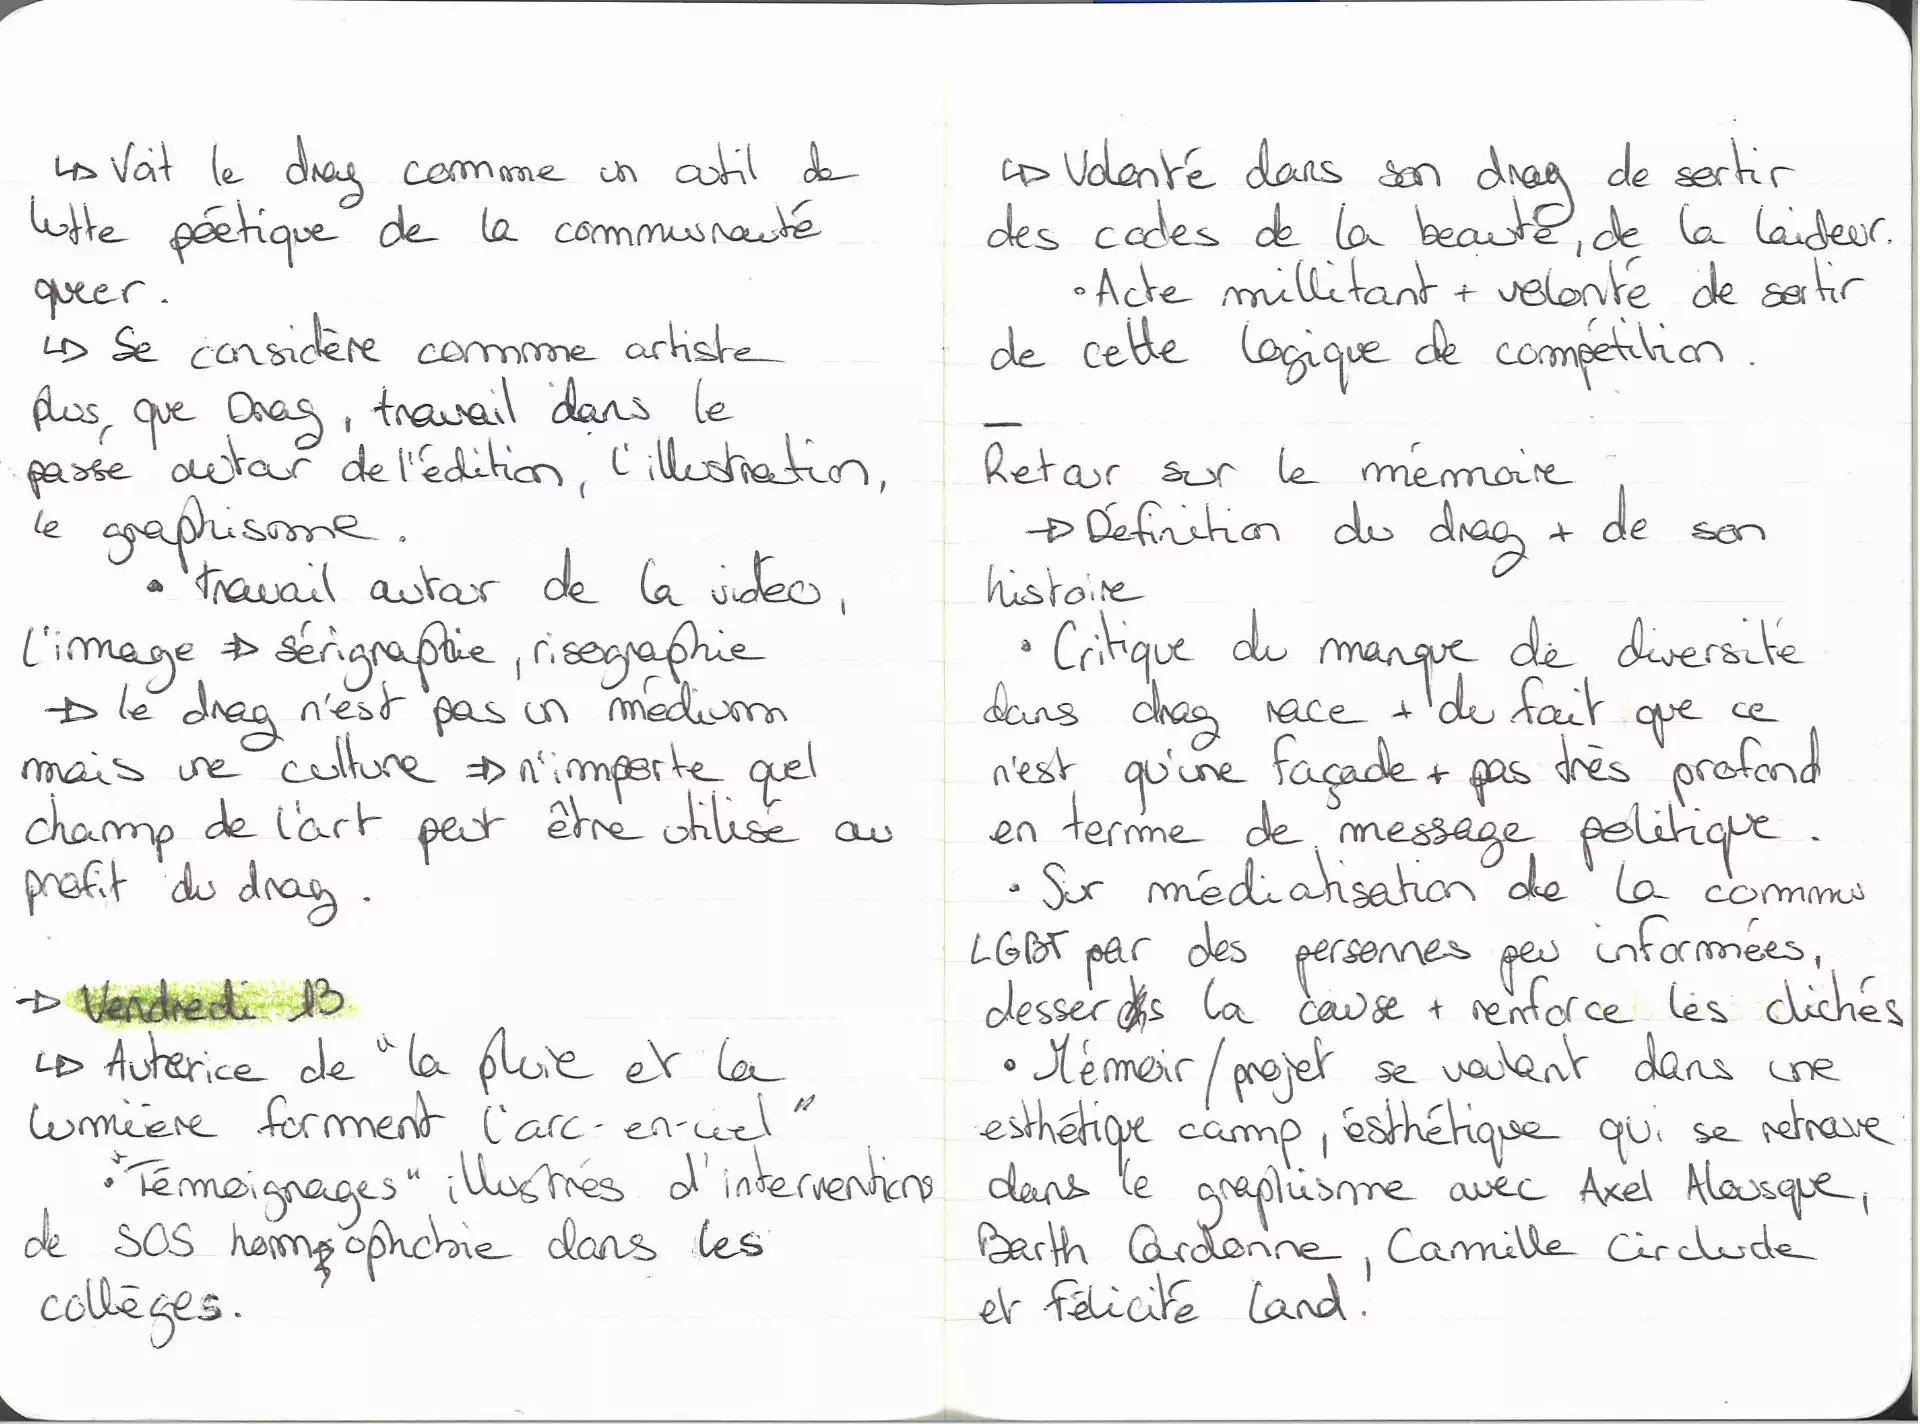 ↳ Voit le drag comme un outil de
lutte poétique de la communauté
queer.
↳ Se considère comme artiste
plus que Drag, travail dans le
passé autour de l'édition, l'illustration,
le graphisme.
• travail autour de la vidéo,
l'image ⇒ sérigraphie, risographie
→ le drag n'est pas un médium
mais une culture ⇒ n'importe quel
champ de l'art peut être utilisé au
profit du drag.
→ Vendredi 13
↳ Autorice de "la pluie et la
lumière forment l'arc-en-ciel"
• "Témoignages" illustrés d'interventions
de SOS homophobie dans les
collèges.
↳ Volonté dans son drag de sortir
des codes de la beauté, de la laideur.
• Acte millitant + volonté de sortir
de cette logique de compétition.
—
Retour sur le mémoire
→ Définition du drag + de son
histoire
• Critique du manque de diversité
dans drag race + du fait que ce
n'est qu'une façade + pas très profond
en terme de message politique.
• Sur médiatisation de la commu
LGBT par des personnes peu informées,
dessers la cause + renforce les clichés
• Mémoir/projet se voulant dans une
esthétique camp, ésthétique qui se retrouve
dans le graphisme avec Axel Alousque,
Barth Cardonne, Camille Circlude
et Félicité Land.